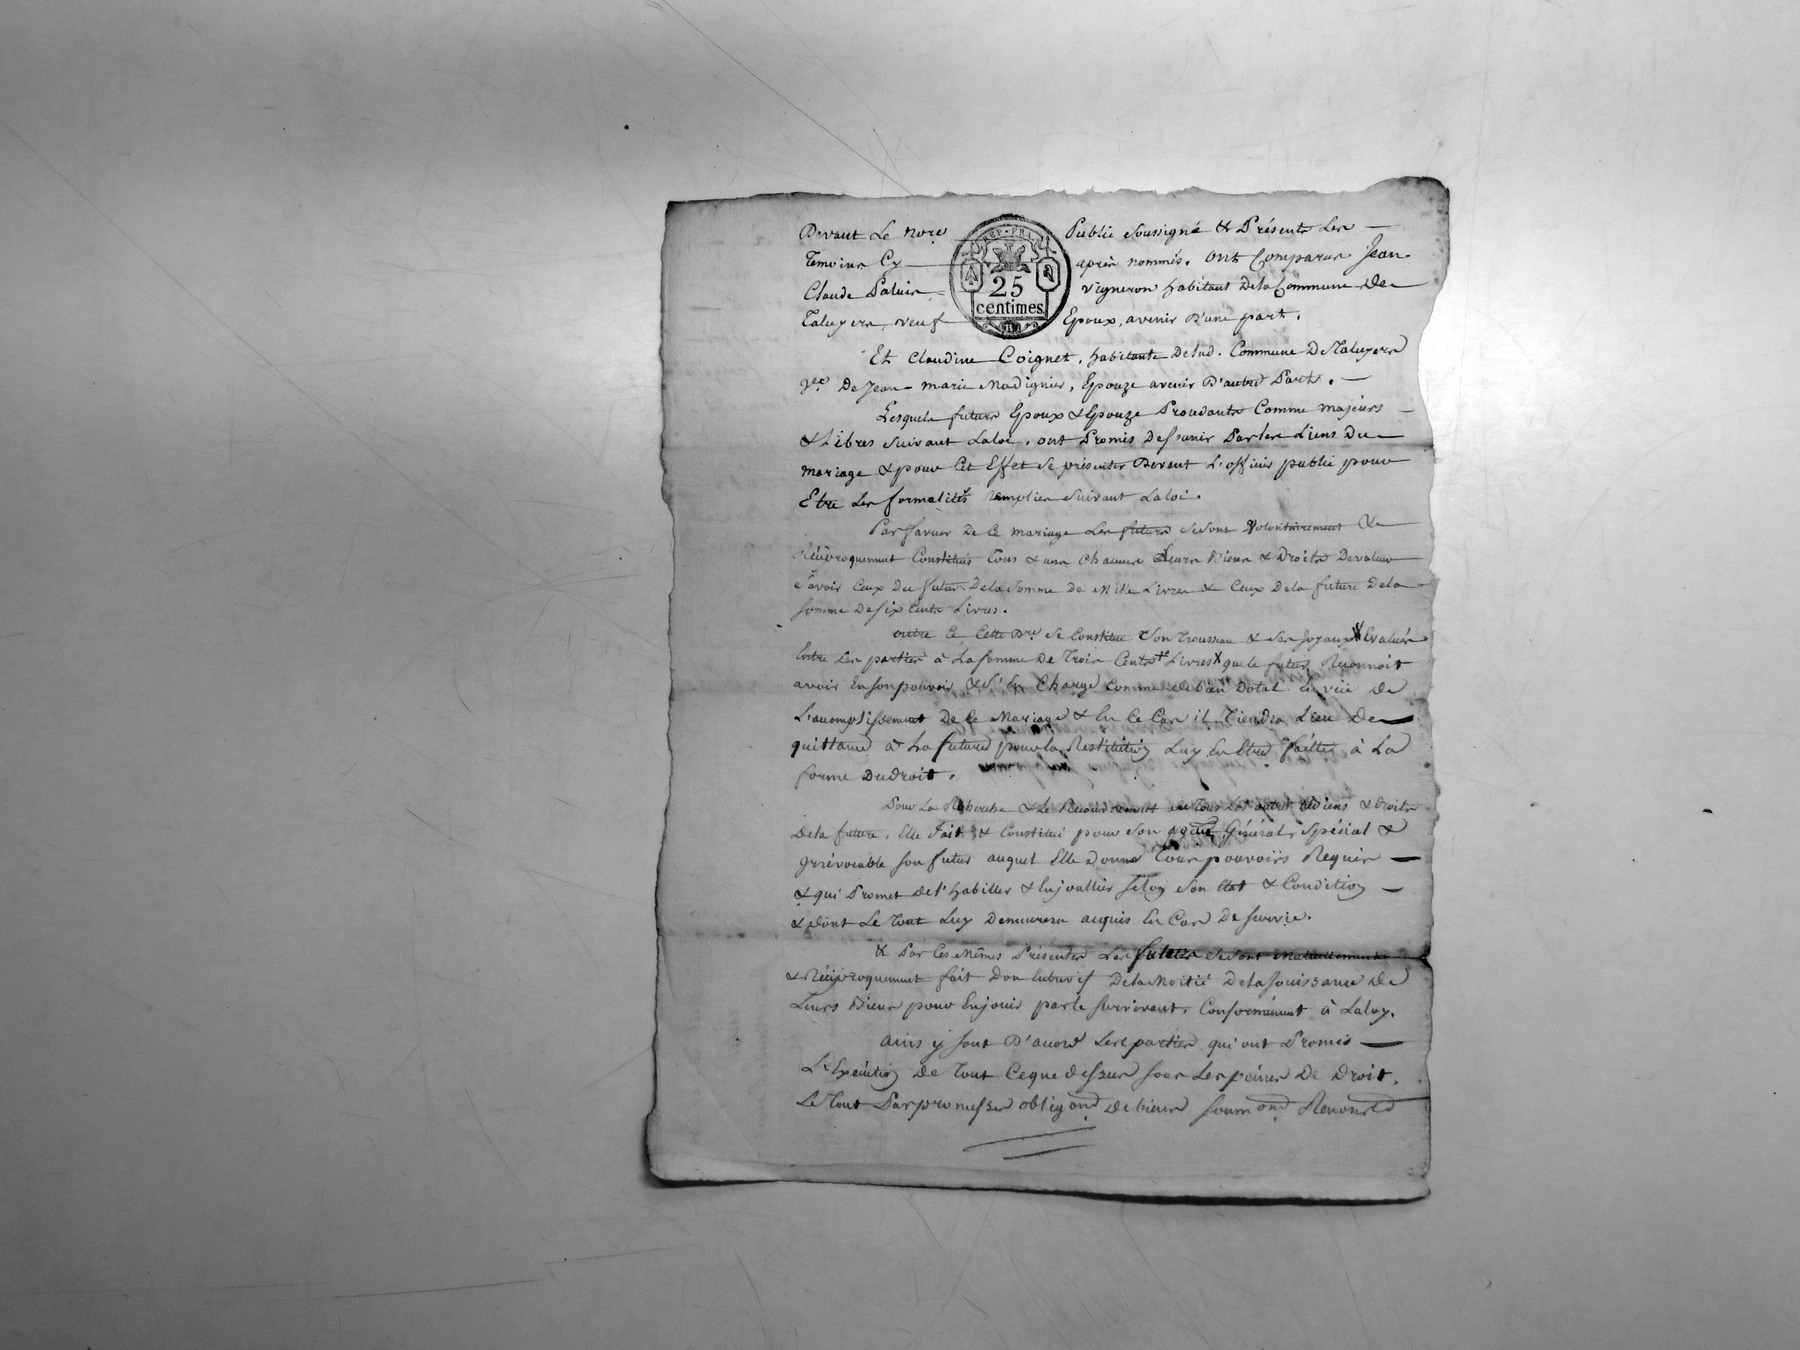 Devant Le Nore Public soussigné & Présents Les
Temoins Cy après nommés. Ont Comparus Jean
Claude Paluis vigneron habitant De la Commune De
Taluyers, veuf Epoux, avenir D'une part.
REP. FRA.
25
centimes
Et Claudine Coignet, habitante De lad. Commune De Taluyers
Vve. De Jean-marie Madignier, Epouze avenir D'autre Part.
Lesquels futurs Epoux & Epouze Procédants Comme majeurs
& Libres suivant La loi, ont Promis De s'unir Par les Liens Du
mariage & pour Cet Effet se présenter Devant L'officier public pour
Etre Les formalités remplies suivant La loi.
Par faveur De Ce mariage Les futurs se sont volontairement &
Réciproquement Constitués Tous & uns Chacuns Leurs Biens & Droits De valeur
sçavoir Ceux Du futur De la somme De Mille Livres & Ceux De la future De la
somme De six Cents Livres.
outre Ce Cette Dre se Constitue son Trousseau & ses Joyaux Evalués
Entre Les parties à La somme De Trois Cents Livres que le futur Reconnoit
avoir En son pouvoir & s'En Charge Comme de bien Dotal en vüe De
L'accomplissement De Ce Mariage & En Ce Cas il Tiendra Lieu De
quittance à La future pour la Restitution Luy En Etre faitte à La
forme Du droit.
Pour La Recherche & Le Recouvrement de Tous Les autres Biens & Droits
De la future, Elle Fait & Constitue pour son Général, Spécial &
Irrévocable son futur auquel Elle Donne Tous pouvoirs Requis
& qui Promet De l'habiller & Enjoailler selon son Etat & Condition
& Dont Le Tout Luy Demeurera acquis En Cas De survie.
& Par Ces Mêmes Présentes Les futurs se sont Mutuellement
& Réciproquement fait Don Entrevifs De la Moitié De la Jouissance De
Leurs Biens pour En jouir par le survivant, Conformément à La loy.
ainsi y sont D'accord Les parties qui ont Promis
L'Exécution De Tout Ce que dessus sous Les peines De Droit.
Le Tout Par promesses obligaond De biens soum ond Renoned